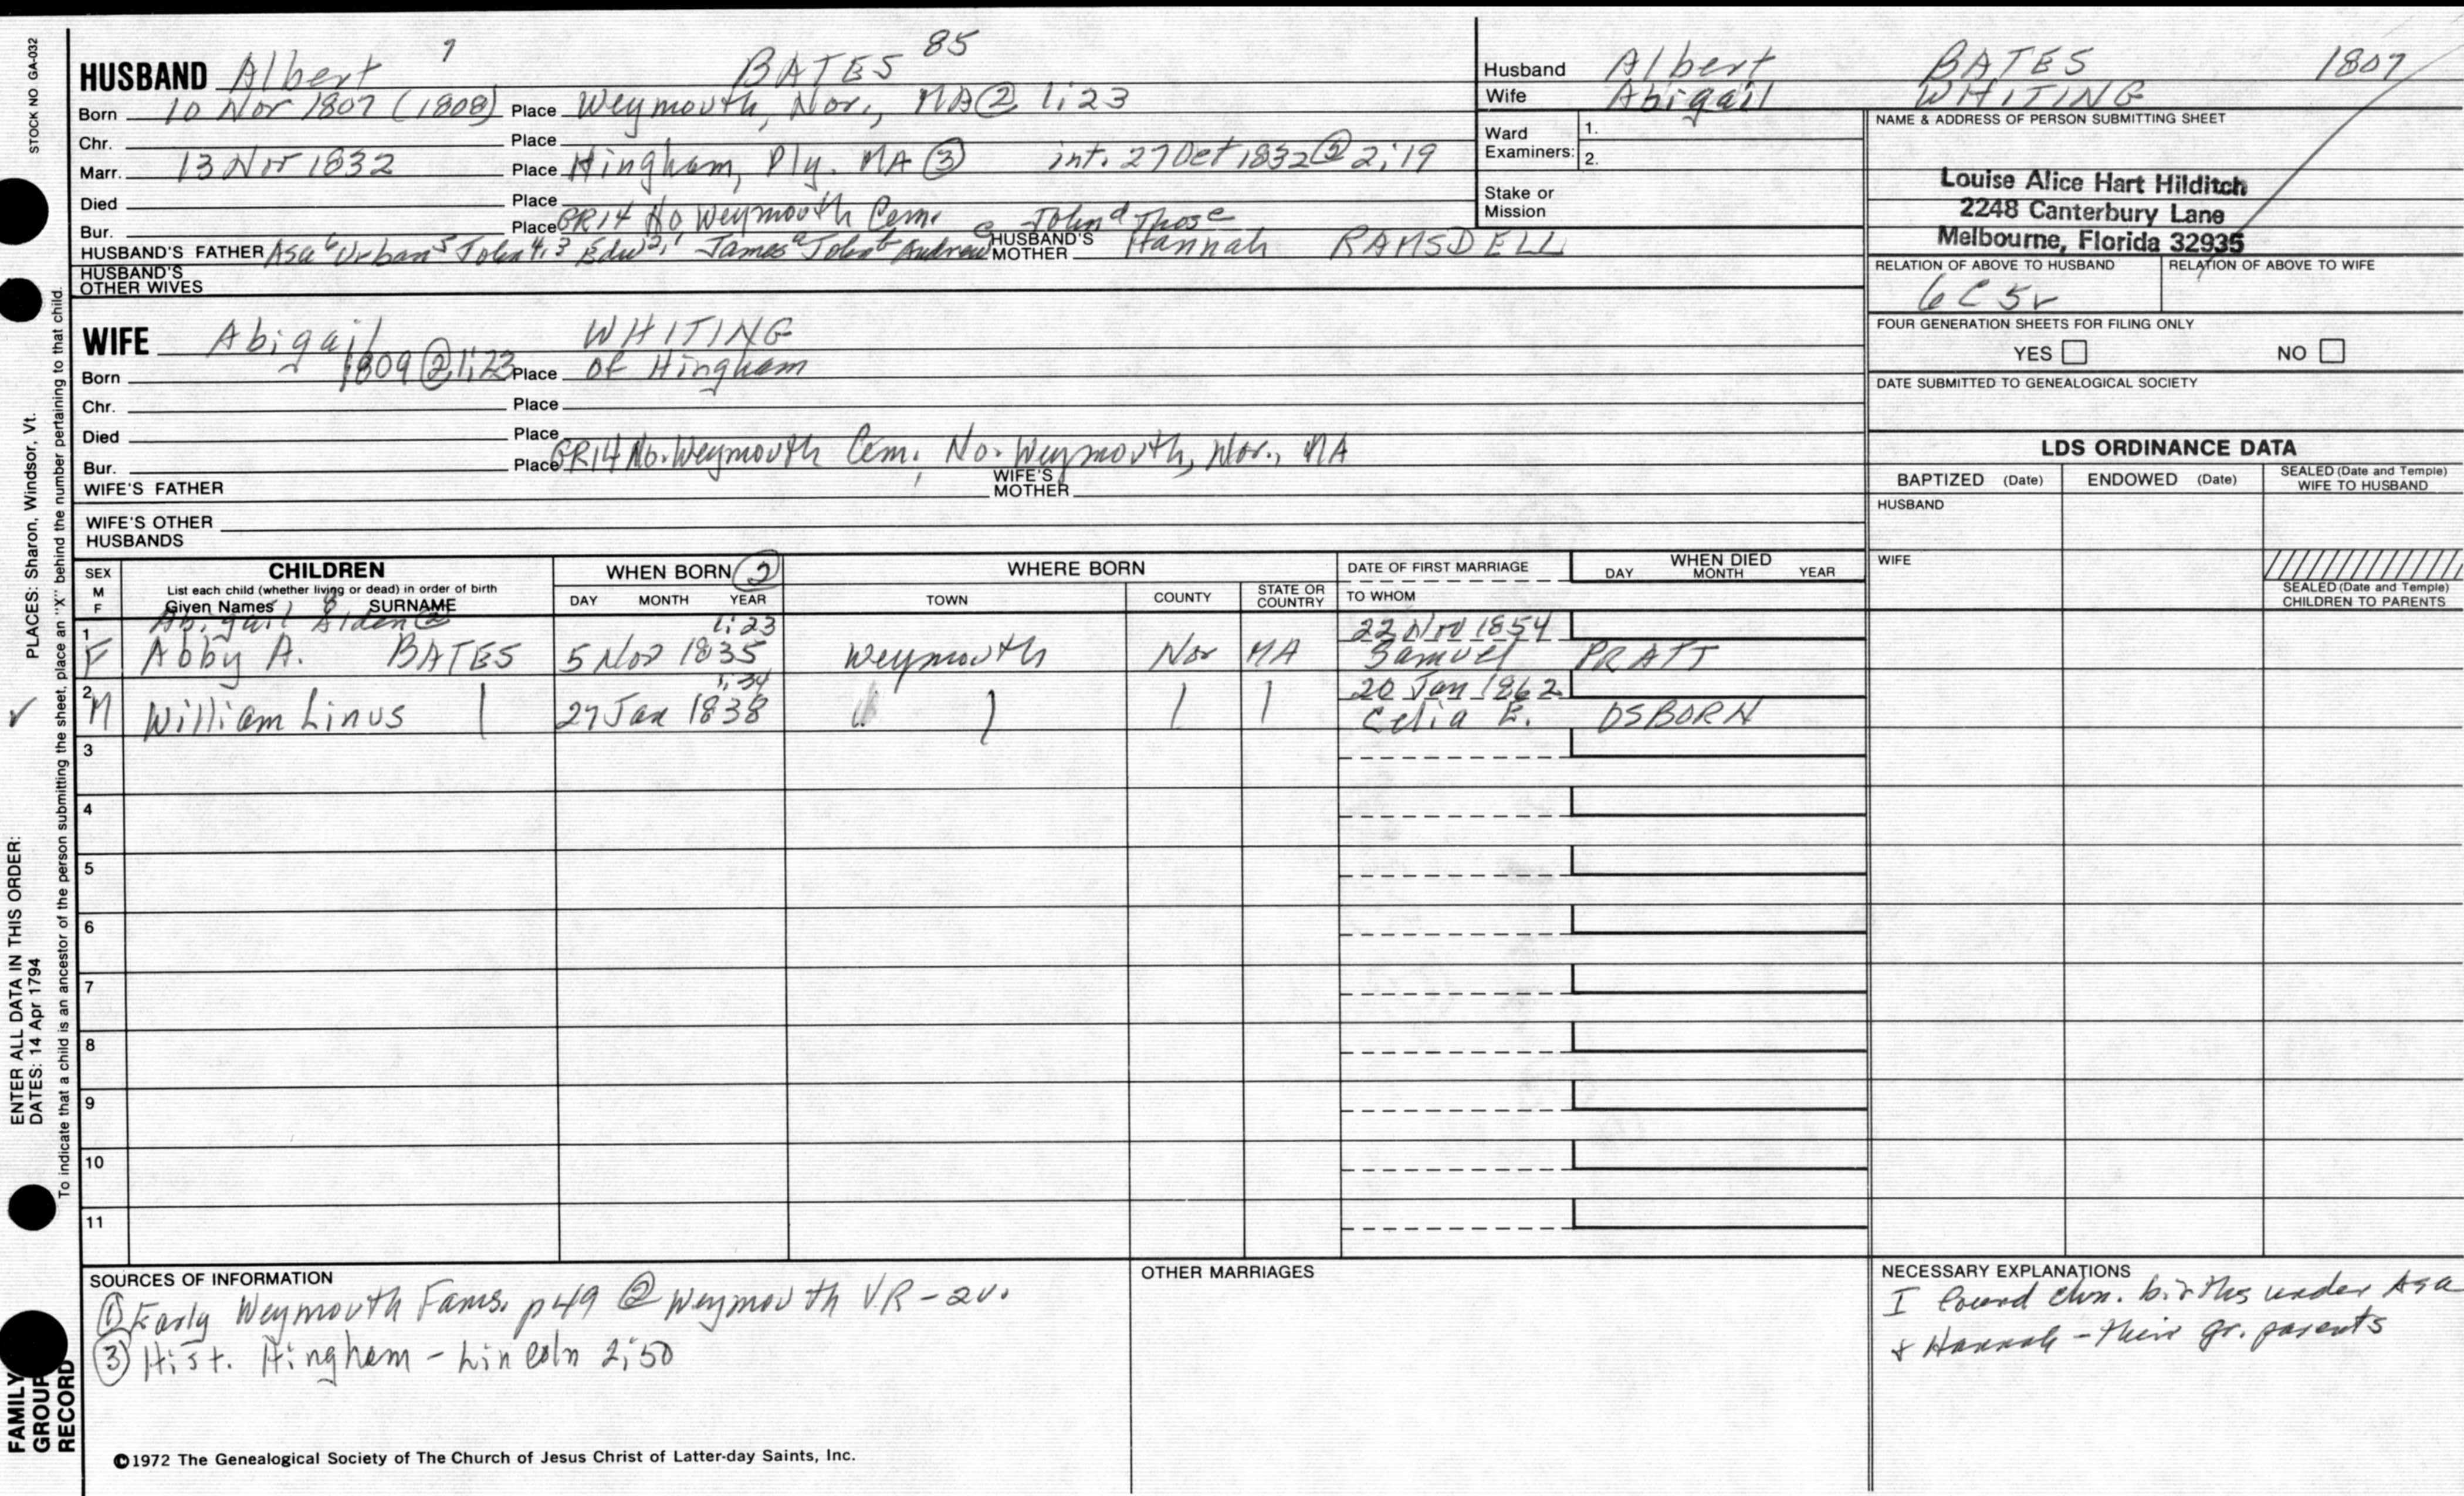 STOCK NO GA-032
PLACES: Sharon, Windsor, Vt.
ENTER ALL DATA IN THIS ORDER:
DATES: 14 Apr 1794
To indicate that a child is an ancestor of the person submitting the sheet, place an "X" behind the number pertaining to that child.
FAMILY GROUP RECORD
HUSBAND Albert 7 BATES 85
Born 10 Nov 1807 (1808) Place Weymouth, Nor., MA ② 1:23
Chr. Place
Marr. 13 Nov 1832 Place Hingham, Ply. MA ③ int. 27 Oct 1832 ② 2:19
Died Place
Bur. Place GR14 No Weymouth Cem. c John d Thos e
HUSBAND'S FATHER Asa 6 Urban 5 John 4,3 Edw 2,1 James a John b Andrew HUSBAND'S MOTHER Hannah RAMSDELL
HUSBAND'S OTHER WIVES
WIFE Abigail WHITING
Born 1809 ② 1:23 Place of Hingham
Chr. Place
Died Place
Bur. Place GR14 No. Weymouth Cem. No. Weymouth, Nor., MA
WIFE'S FATHER WIFE'S MOTHER
WIFE'S OTHER HUSBANDS
Husband Albert BATES 1807
Wife Abigail WHITING
Ward Examiners: 1.
2.
Stake or Mission
NAME & ADDRESS OF PERSON SUBMITTING SHEET
Louise Alice Hart Hilditch
2248 Canterbury Lane
Melbourne, Florida 32935
RELATION OF ABOVE TO HUSBAND RELATION OF ABOVE TO WIFE
6C 5r
FOUR GENERATION SHEETS FOR FILING ONLY
YES NO
DATE SUBMITTED TO GENEALOGICAL SOCIETY
LDS ORDINANCE DATA
BAPTIZED (Date) ENDOWED (Date) SEALED (Date and Temple) WIFE TO HUSBAND
HUSBAND
WIFE
SEALED (Date and Temple) CHILDREN TO PARENTS
SEX M F CHILDREN WHEN BORN ② WHERE BORN DATE OF FIRST MARRIAGE WHEN DIED
List each child (whether living or dead) in order of birth
Given Names 8 SURNAME DAY MONTH YEAR TOWN COUNTY STATE OR COUNTRY TO WHOM DAY MONTH YEAR
Abigail Alden ② 1:23 22 Nov 1854
1 F Abby A. BATES 5 Nov 1835 Weymouth Nor MA Samuel PRATT
1:34 20 Jan 1862
2 M William Linus 27 Jan 1838 Celia E. OSBORN
3
4
5
6
7
8
9
10
11
SOURCES OF INFORMATION
① Early Weymouth Fams. p49 ② Weymouth VR - 2v.
③ Hist. Hingham - Lincoln 2:50
©1972 The Genealogical Society of The Church of Jesus Christ of Latter-day Saints, Inc.
OTHER MARRIAGES
NECESSARY EXPLANATIONS
I found chn. births under Asa
+ Hannah - their gr. parents